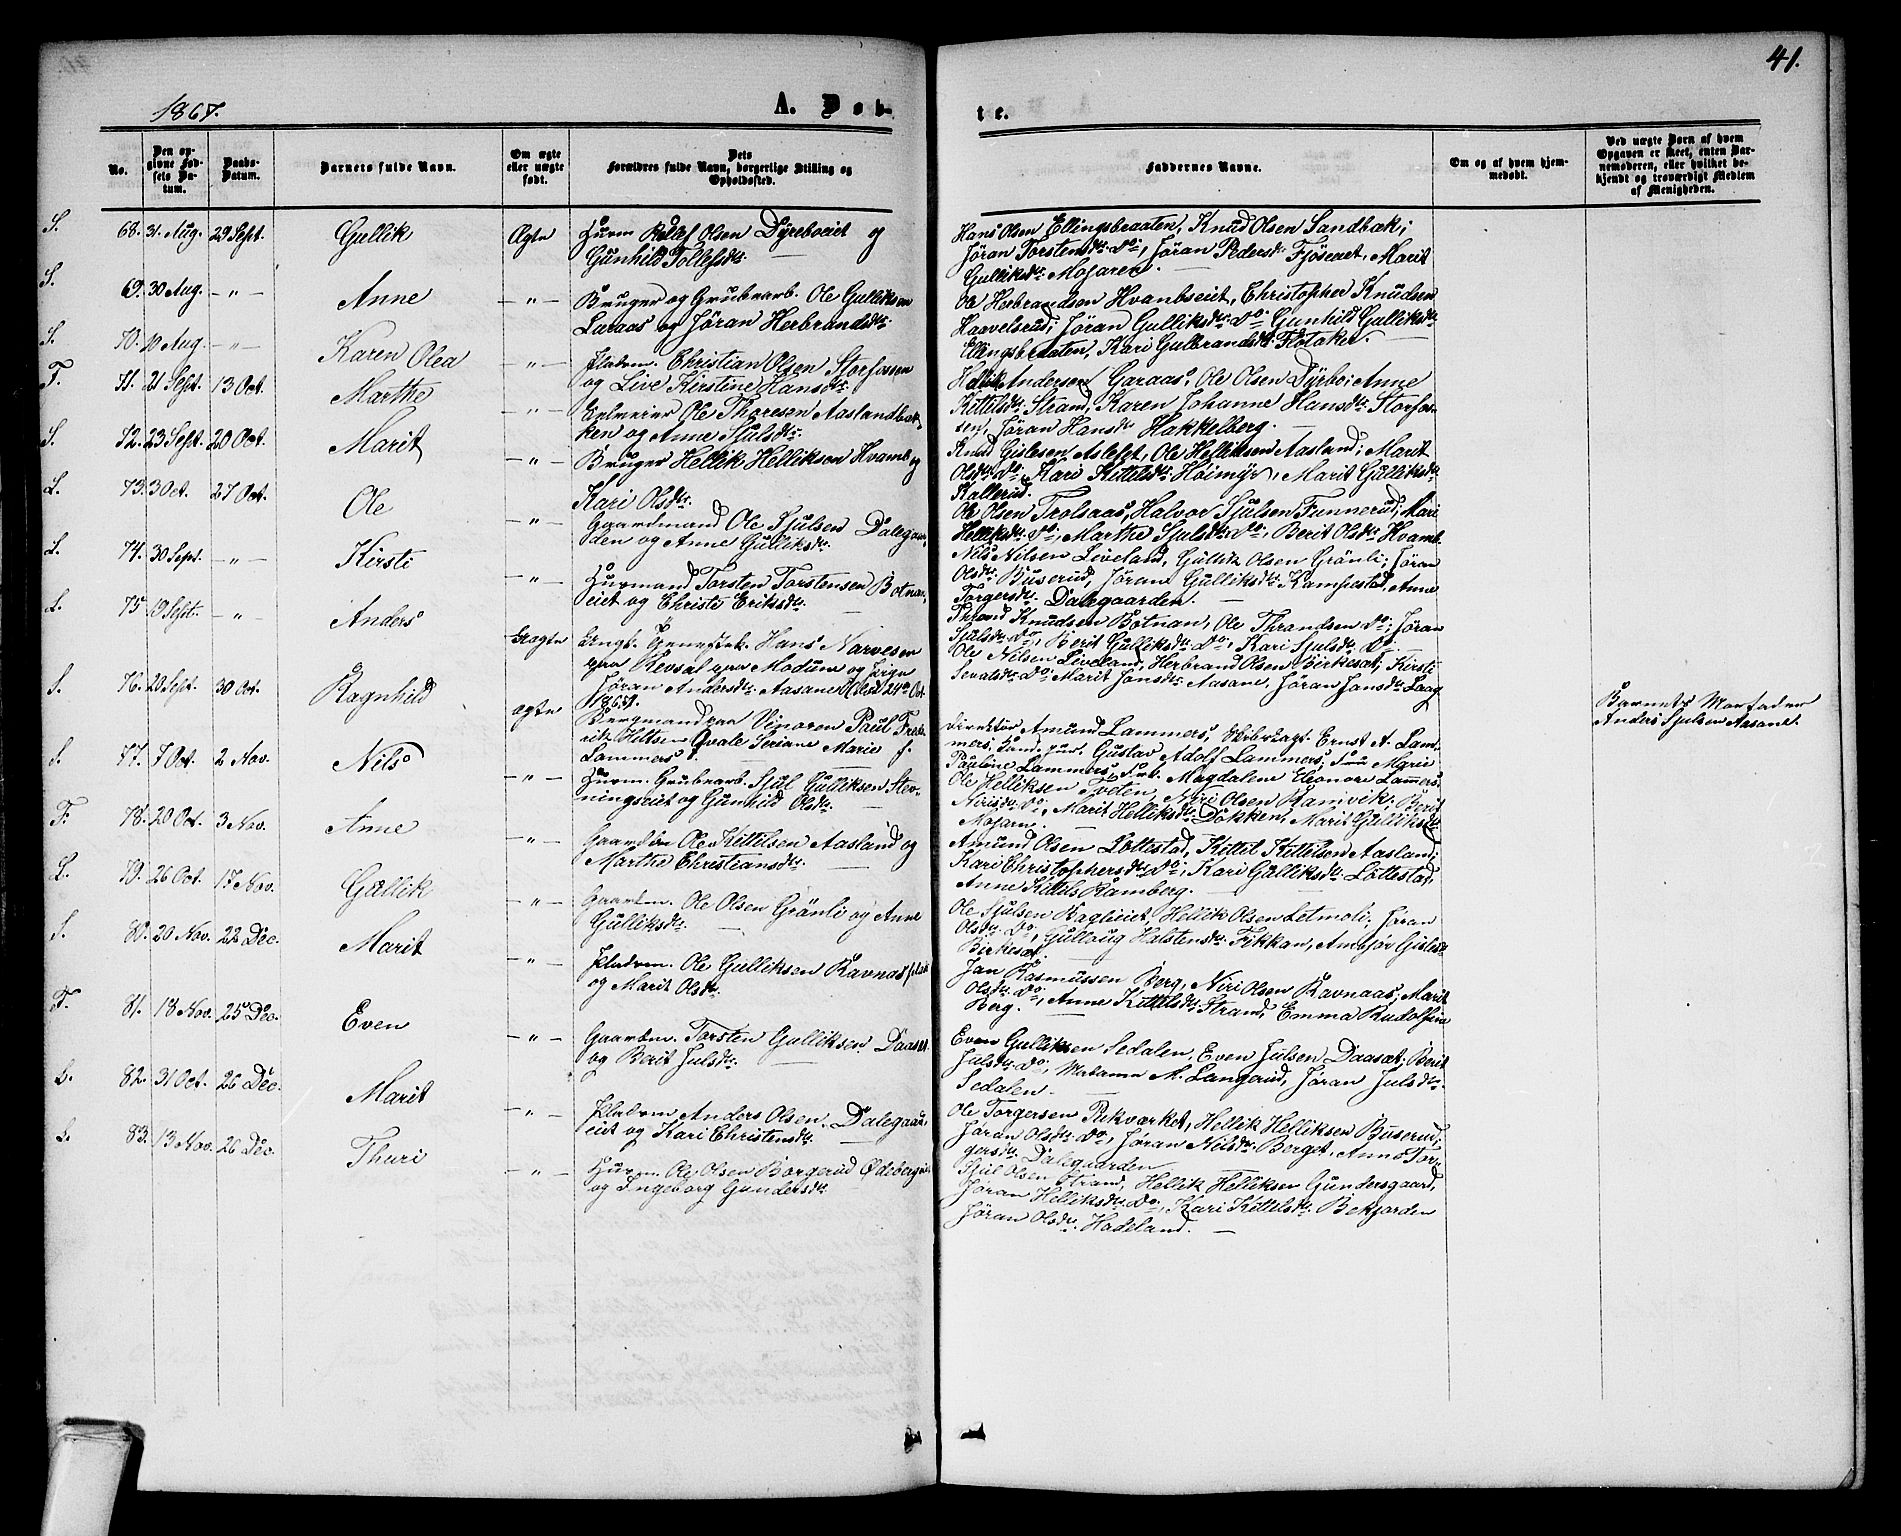 41.
1867. A. Døb- te.
No. Den opgivne Fødsels Datum. Daabs-Datum. Barnets fulde Navn. Om ægte eller uægte født. Dets Forældres fulde Navn, borgerlige Stilling og Opholdssted. Faddernes Navne. Om og af hvem hjemmedøbt. Ved uægte Børn af hvem Opgaven er skeet, enten Barnemoderen, eller hvilket bekjendt og troværdigt Medlem af Menigheden.
S. 68. 31. Aug. 29 Sept. Gullik Ægte Huusm. Olsen Dyreboeiet og
Gunhild Tollefsdtr.
Hans Olsen Ellingsbraaten, Knud Olsen Sandbæk;
Jøran Torstensdtr. do, Jøran Pedersd. Fjøseeiet, Marit
Gulliksdtr. Mojaren.
S. 69. 30 Aug. — " — Anne — " — Bruger og Grubearb. Ole Gulliksen
Laraas og Jøran Herbrandsdtr.
Ole Herbrandsen Hvambseiet, Christopher Knudsen
Haavelsrud; Jøran Gulliksdtr. do. Gunhild Gulliksdtr.
Ellingsbraaten, Kari Gulbrandsd. Flotaker.
S. 70. 10 Aug. — " — Karen Olea — " — Pladsm. Christian Olsen Storfossen
og Live Kirstine Hansdtr.
Hellik Andersen Garaas, Ole Olsen Dyrbo; Anne
Kittelsdtr. Strand, Karen Johanne Hansdtr. Storfos-
sen, Jøran Hansdtr Hakkelberg.
F. 71. 21 Sept. 13 Oct. Marthe — " — Ole Thoresen Aaslandbak-
ken og Anne Sjulsdtr.
Knud Gislesen Aslefet, Ole Helliksen Aasland; Marit
Olsdtr. do. Kari Kittelsdtr. Høimyr, Marit Gulliksdtr.
Kallerud.
S. 72. 23 Sept. 20 Oct. Marit — " — Bruger Hellik Helliksen Hvamb og
Kari Olsdtr.
Ole Olsen Trolsaas, Halvor Sjulsen Funnerud; Mari
Helliksdtr. do, Marthe Sjulsdtr. do, Berit Olsdtr. Hvamb.
L. 73. 3 Oct. 27 Oct. Ole — " — Gaardmand Ole Sjulsen Dalegaar-
den og Anne Gulliksdtr.
Nils Nilsen Liveland, Gullik Olsen Grønli; Jøran
Olsdtr. Buserud, Jøran Gulliksdtr. Kampestad, Anne
Torgersdtr. Dalegaarden.
L. 74. 30 Sept. — " — Kirsti — " — Huusmand Torsten Torstensen Botnan-
eiet og Christi Eriksdtr.
Thrond Knudsen Botnan, Ole Thrandsen do; Jøran
Sjulsdtr. do, Berit Gulliksdtr. do, Kari Sjulsdtr. do.
L. 75. 19 Sept. — " — Anders Uægte Ungk. Hans Narvesen
fra Modum og Pige
Jøran Andersdtr. Aasane
1867.
Ole Nilsen Liveland, Herbrand Olsen Birkesæt; Kirsti
Sevatsdtr. do. Marit Jonsdtr. Aasane, Jøran Jonsdtr. Laag
Barnets Morfader
Anders Sjulsen Aasane.
S. 76. 20 Sept. 30 Oct. Ragnhild ægte Bergmand Vinoren Paul Fred-
rik Hiltsen Qvale Seriane Marie f.
Lammers.
Direktør Amund Lammers, Ernst A. Lam-
mers, Gustav Adolf Lammers; Marie
Pauline Lammers, Magdalene Eleonore Lammers.
S. 77. 7 Oct. 2 Nov. Nils — " — Huusm. Grubearb. Sjul Gulliksen Stev-
ningseiet og Gunhild Olsdtr.
Ole Helliksen Tveten, Niri Olsen Ramvik; Berit
Nirisdtr. do, Marit Helliksdtr. Dokken, Marit Gulliksdtr
Mojaren.
F. 78. 20 Oct. 3 Nov. Anne — " — Gaardm Ole Kittilsen Aasland og
Marthe Christiansdtr.
Amund Olsen Lottestad, Kittil Kittilsen Aasland;
Kari Christophersdtr. do, Kari Gulliksdtr. Lottestad,
Anne Kittels Ramberg.
L. 79. 26 Oct. 17 Nov. Gullik — " — Gaardm. Ole Olsen Grønli og Anne
Gulliksdtr.
Ole Sjulsen Hagleiet, Hellik Olsen Letmoli; Jøran
Olsdtr. do, Gullaug Halstensdtr. Fikkan, Ambjør Gislesdtr
Birkesæt.
S. 80. 20 Nov. 22 Dec. Marit — " — Pladsm. Ole Gulliksen Ravnaas
og Marit Olsdtr.
Jan Rasmussen Berg, Niri Olsen Ravnaas; Marit
Olsdtr. do, Anne Kittelsdtr. Strand, Emma Rudolfine
Berg.
F. 81. 18 Nov. 25 Dec. Even — " — Gaardm. Torsten Gulliksen Daaset
og Berit Julsdtr.
Even Gulliksen Sedalen, Even Julsen Daasæt; Berit
Julsdtr. do, Madame M. Langerud, Jøran Julsdtr.
Sedalen.
L. 82. 31 Oct. 26 Dec. Marit — " — Pladsm Anders Olsen Dalegaard-
eiet og Kari Christensdtr.
Ole Torgersen Bekværket, Hellik Helliksen Buserud;
Jøran Olsdtr. do, Jøran Nilsdtr. Berget, Anne Tor-
gersdtr. Dalegaarden
L. 83. 13 Nov. 26 Dec. Thuri — " — Huusm. Ole Olsen Borgerud Ødeberg
og Ingeborg Gundersdtr.
Sjul Olsen Strand, Hellik Helliksen Gundersgaard,
Jøran Helliksdtr. do, Kari Kittilsdtr. Bekjorden
Jøran Olsdtr. Hadeland.